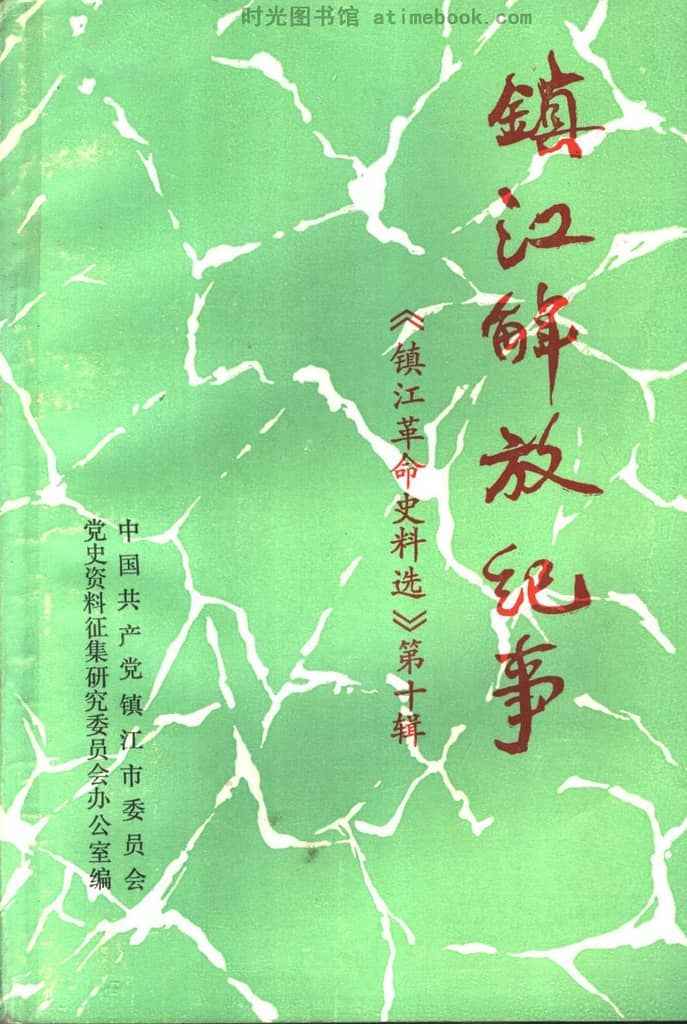 时光图书馆 atimebook.com
鎮江解放纪事
《镇江革命史料选》第十辑
中国共产党镇江市委员会
党史资料征集研究委员会办公室编